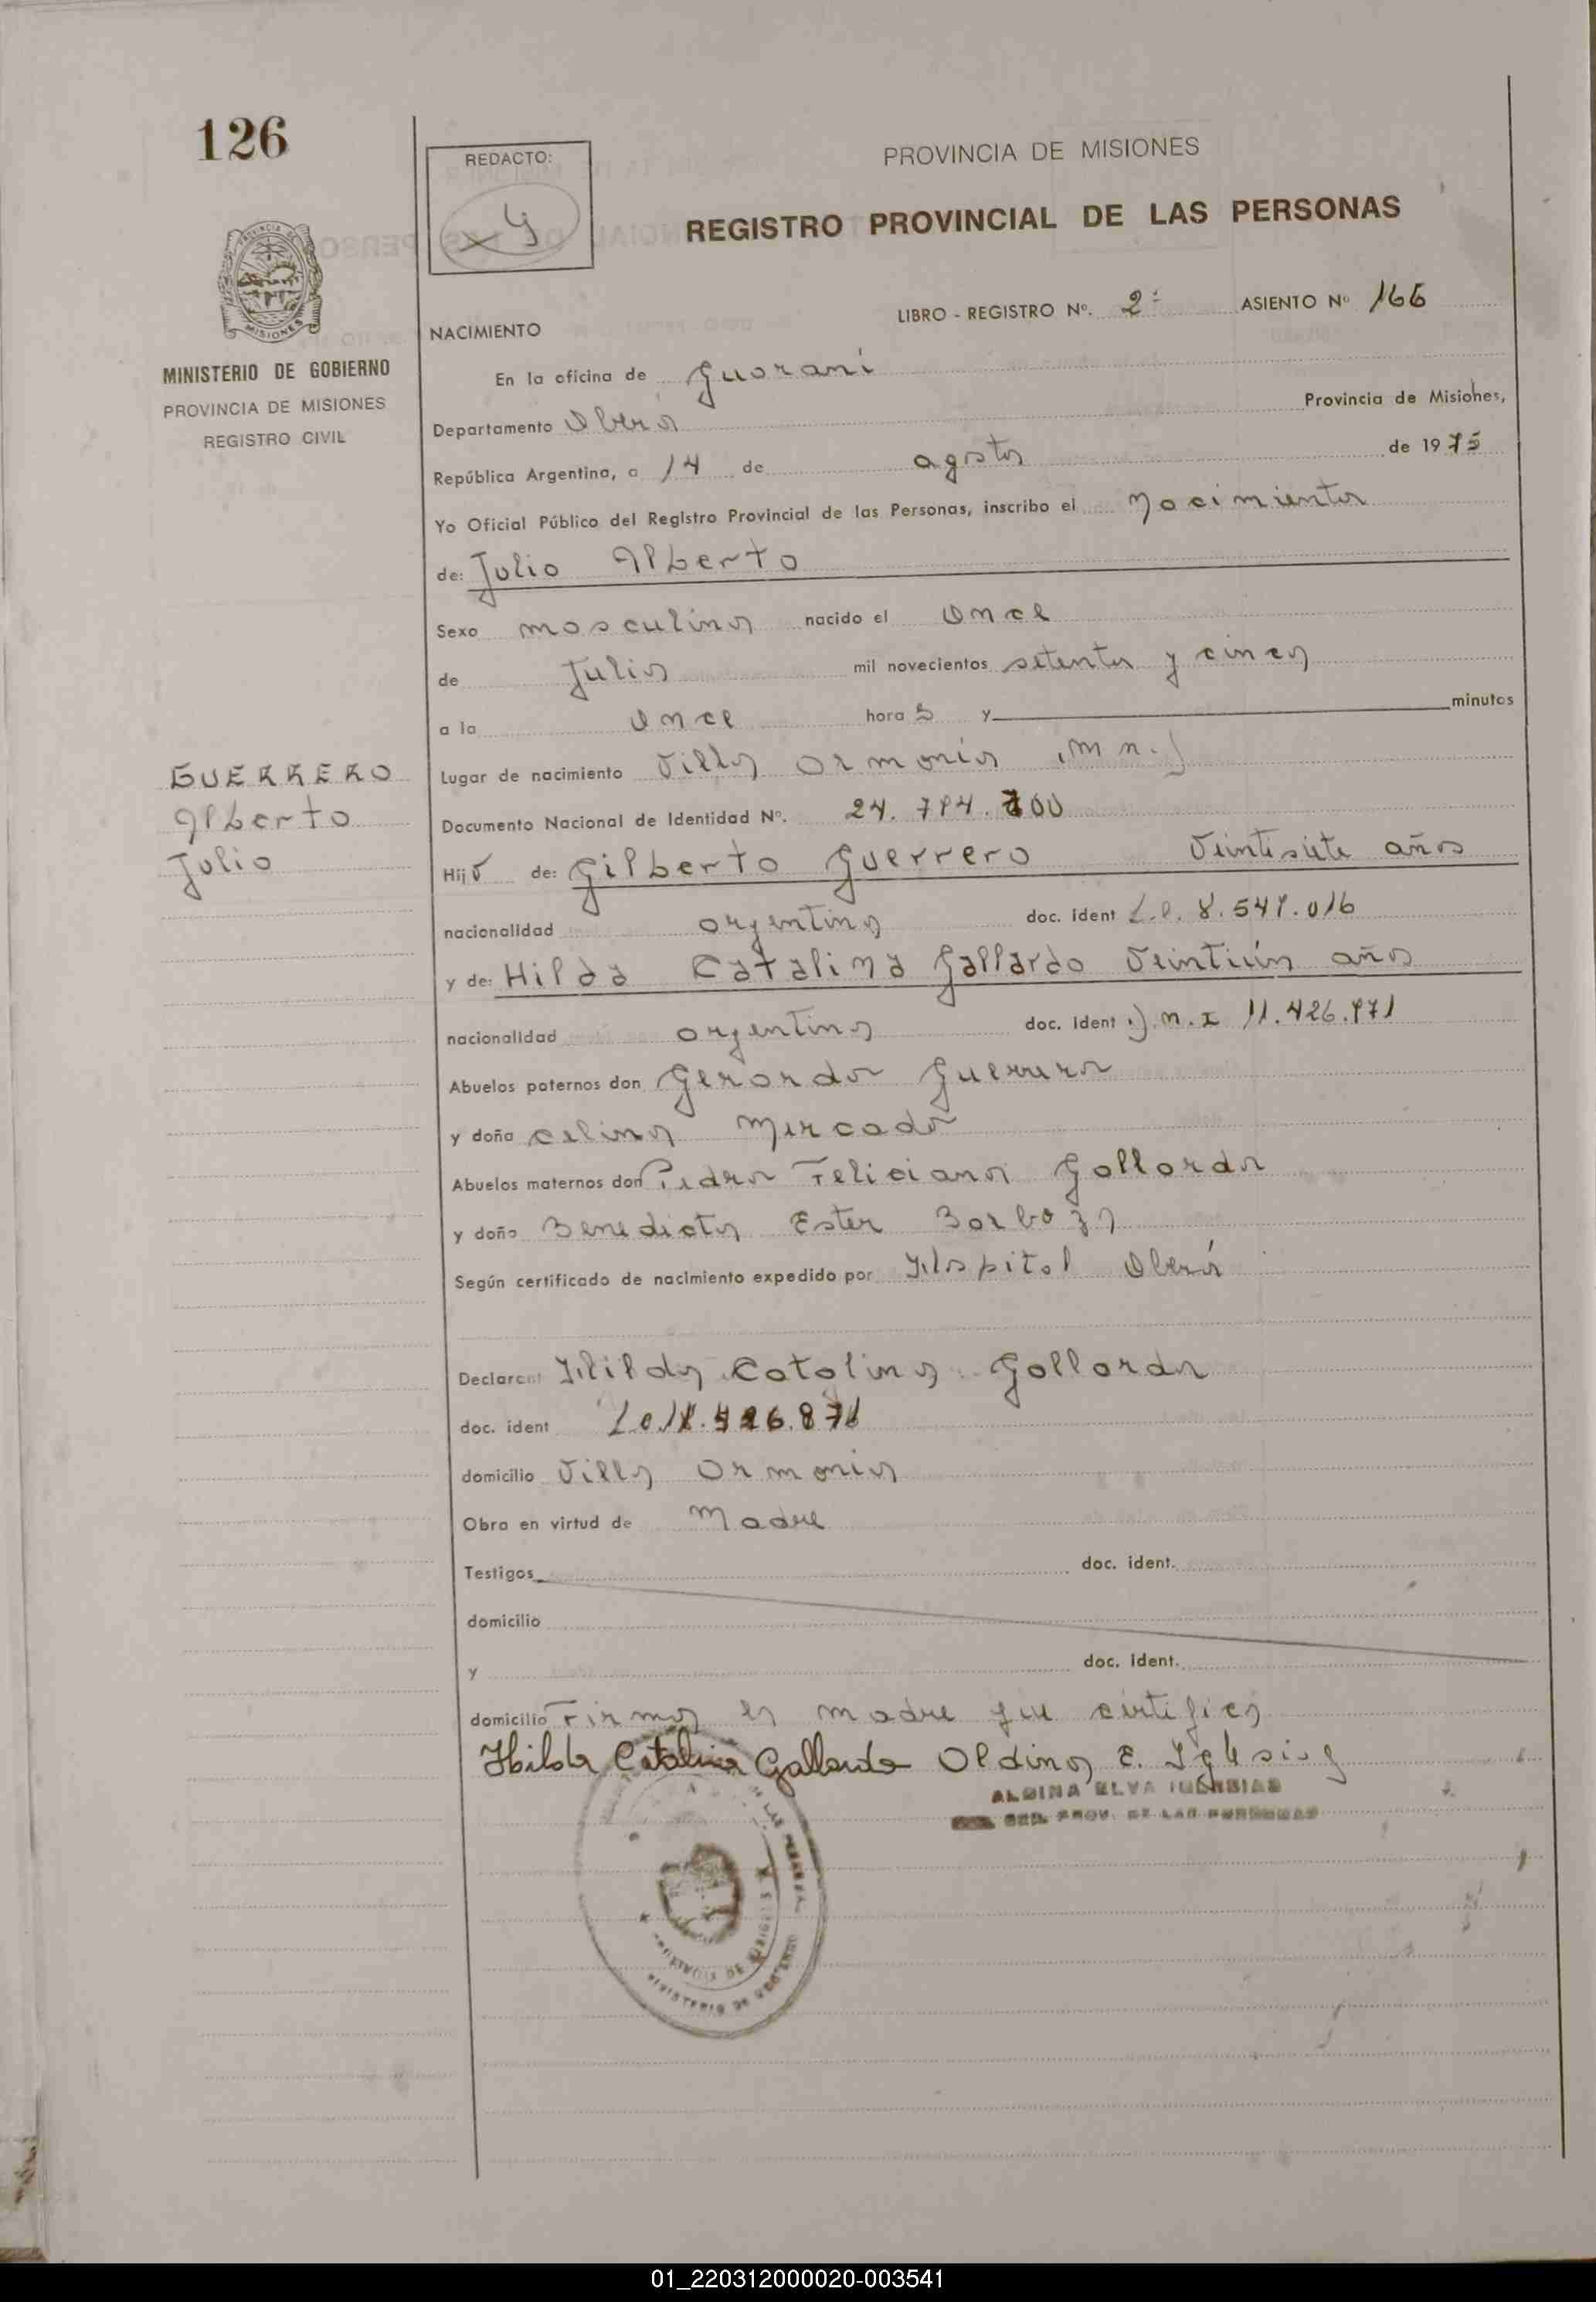 126
REDACTO:
PROVINCIA DE MISIONES
REGISTRO PROVINCIAL DE LAS PERSONAS
PROVINCIA DE
MISIONES
MINISTERIO DE GOBIERNO
PROVINCIA DE MISIONES
REGISTRO CIVIL
GUERRERO
Alberto
Julio
LIBRO - REGISTRO Nº. 2º ASIENTO Nº 166
NACIMIENTO
En la oficina de Guarani
Departamento Oberá Provincia de Misiones,
República Argentina, a 14 de agosto de 1975
Yo Oficial Público del Registro Provincial de las Personas, inscribo el Nacimiento
de: Julio Alberto
Sexo masculino nacido el once
de Julio mil novecientos setenta y cinco
a la once hora s y minutos
Lugar de nacimiento Villa Armonía
Documento Nacional de Identidad Nº. 24.794.700
Hijo de: Gilberto Guerrero Veintisiete años
nacionalidad argentina doc. ident L.E. 8.547.016
y de: Hilda Catalina Gallardo Veintiún años
nacionalidad argentina doc. ident D.N.I 11.426.971
Abuelos paternos don Gerardo Guerrero
y doña Celina Mercado
Abuelos maternos don Pedro Feliciano Gallardo
y doña Benedicta Ester Barboza
Según certificado de nacimiento expedido por Hospital Oberá
Declarant Hilda Catalina Gallardo
doc. ident
domicilio Villa Armonia
Obra en virtud de Madre
Testigos doc. ident.
domicilio
y doc. ident.
domicilio Firma la madre que certifica
Hilda Catalina Gallardo Aldina E. Iglesias
ALDINA ELVA IGLESIAS
REG. PROV. DE LAS PERSONAS
PROVINCIA DE MISIONES
MINISTERIO DE GOBIERNO
01_220312000020-003541